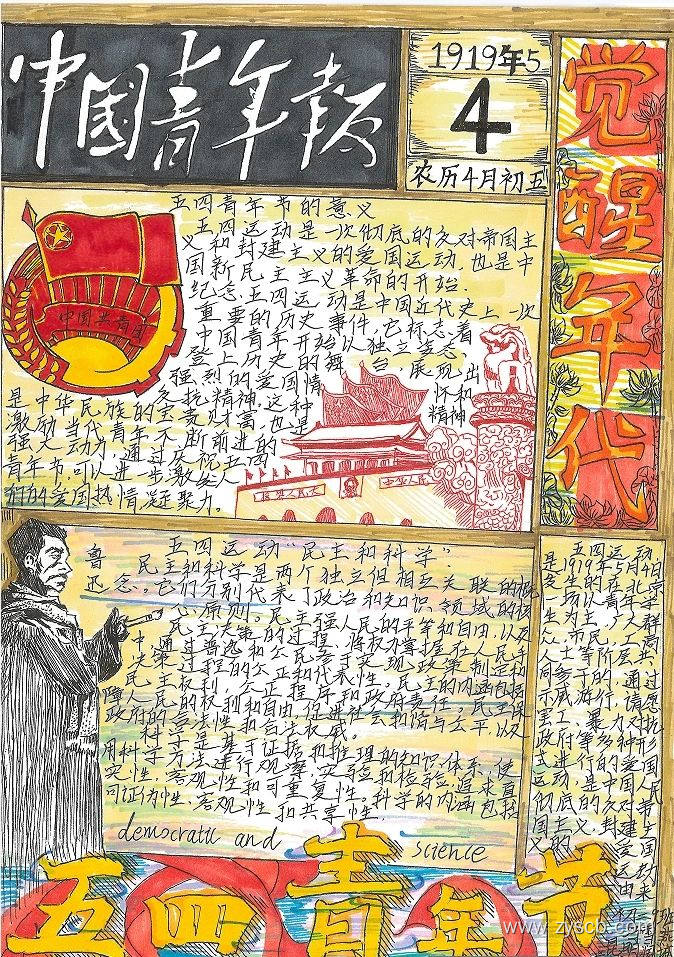 中国青年报
1919年5
4
农历4月初五
觉醒年代
五四青年节的意义
五四运动是一次彻底的反对帝国主
义和封建主义的爱国运动,也是中
国新民主主义革命的开始.
纪念五四运动是中国近代史上一次
重要的历史事件,它标志着
中国青年开始以独立姿态
登上历史的舞台,展现出
强烈的爱国情怀和
反抗精神,这种精神
是中华民族的宝贵财富,也是
激励当代青年不断前进的
强大动力,通过庆祝五四
青年节,可以进一步激发人
们的爱国热情凝聚力。
中国共青团
鲁迅
五四运动“民主和科学”:
民主和科学是两个独立但相互关联的概
念。它们分别代表了政治和知识领域的核
心原则。
民主强
决策的过程,将权力掌握在人民手
中,通过普选和公民参与来实现政策制定和
过程的公正和代表性。民主的内涵包括
民主权利、公正程序和政府责任,民主保
障人民的权利和自由,促进社会和谐与公平,以及
政府的合法性和合法权威。
科学是基于证据和推理的知识体系,使
用科学方法进行观察、实验和检验,追求真
实性、客观性和可重复性。科学的内涵包括
可证伪性、客观性和共享性.
democratic and
science
五四运动
是1919年5月4日
发生的在北京
一场以青年学
生为主,广大群
众、市民、工商
人士等阶层共
同参与的,通过
示威游行、请愿
罢工、暴力对抗
政府等多种形
式进行的爱国
运动,是中国人民
彻底的反对帝
国主义、封建主
义的爱国运
五四青年节
www.zyscb.com